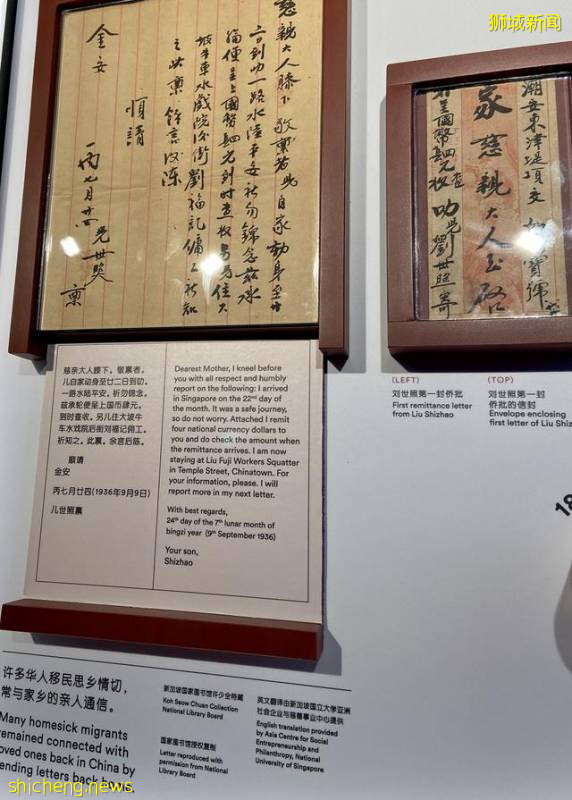 狮城新闻
慈親大人膝下 敬稟者兒自家動身至廿
二日到叻一路水陸平安祈勿錦念茲承
輪便呈上國幣肆元到时查收
坡牛車水戲院後街劉福記傭工祈知
之此稟 餘言後陳
順請
金安
丙七月廿四 兒世照 稟
潮安東津堤頂交
家慈親大人玉啟
呈國幣肆元查收 叻兒劉世照寄
慈亲大人膝下。敬禀者。
儿自家动身至廿二日到叻。
一路水陆平安。祈勿锦念。
兹承轮便呈上国币肆元。
到时查收。另儿住大坡牛
车水戏院后街刘福记佣工。
祈知之。此禀。余言后陈。
顺请
金安
丙七月廿四(1936年9月9日)
儿世照禀
Dearest Mother, I kneel before
you with all respect and humbly
report on the following: I arrived
in Singapore on the 22nd day of
the month. It was a safe journey,
so do not worry. Attached I remit
four national currency dollars to
you and do check the amount when
the remittance arrives. I am now
staying at Liu Fuji Workers Squatter
in Temple Street, Chinatown. For
your information, please. I will
report more in my next letter.
With best regards,
24th day of the 7th lunar month of
bingzi year (9th September 1936)
Your son,
Shizhao
(LEFT)
刘世照第一封侨批
First remittance letter
from Liu Shizhao
(TOP)
刘世照第一封
侨批的信封
Envelope enclosing
first letter of Liu Shiz
许多华人移民思乡情切,
常与家乡的亲人通信。
Many homesick migrants
remained connected with
loved ones back in China by
sending letters back home.
新加坡国家图书馆许少全特藏
Koh Seow Chuan Collection
National Library Board
国家图书馆授权复制
Letter reproduced with
permission from National
Library Board
英文翻译由新加坡国立大学亚洲
社会企业与慈善事业中心提供
English translation provided
by Asia Centre for Social
Entrepreneurship and
Philanthropy, National
University of Singapore
18
shicheng.news